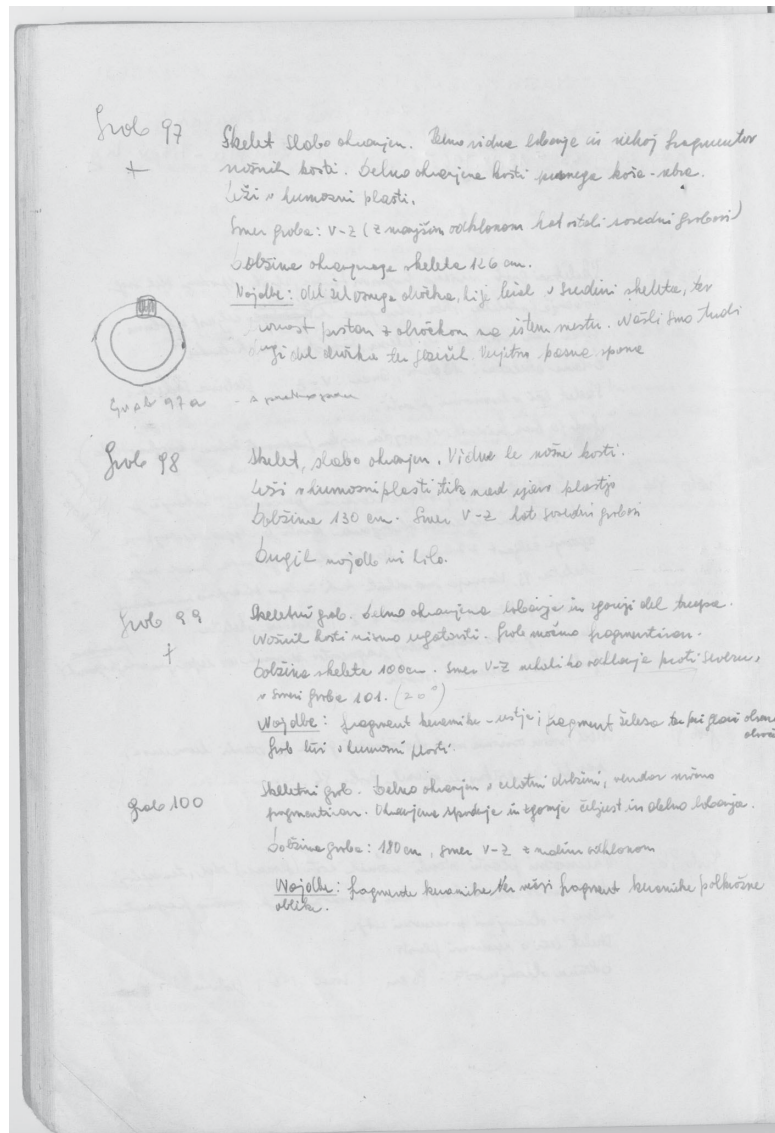 Grob 97
+
Skelet slabo ohranjen. Delno vidna lobanja in nekaj fragmentov
nožnih kosti. Delno ohranjene kosti prsnega koša - rebra.
Leži v humozni plasti.
Smer groba: V-Z (z manjšim odklonom kot ostali sosednji grobovi)
Dolžina ohranjenega skeleta 126 cm.
Najdbe: del železnega obročka, ki je ležal v sredini skeleta, ter
prstan z obročkom na istem mestu. Našli smo tudi
drugi del obročka ter Verjetno pasna spona
Grob 97a -
Grob 98
Skelet, slabo ohranjen. Vidne le nožne kosti.
Leži v humozni plasti tik nad plastjo
Dolžina 130 cm. Smer V-Z kot sosednji grobovi
Drugih najdb ni bilo.
Grob 99
+
Skeletni grob. Delno ohranjena lobanja in zgornji del trupa.
Nožnih kosti nismo ugotovili. Grob močno fragmentiran.
Dolžina skeleta 100 cm. Smer V-Z nekoliko odklonja proti severu,
v smeri groba 101. (20°)
Najdbe: fragment keramike - ustje i fragment železa ter pri glavi
Grob leži v humozni plasti.
Grob 100
Skeletni grob. Delno ohranjen v celotni dolžini, vendar močno
fragmentiran. Ohranjena spodnja in zgornja čeljust in delno lobanja.
Dolžina groba: 180 cm, smer V-Z z malim odklonom
Najdbe: fragmenti keramike ter večji fragment keramike
oblike.